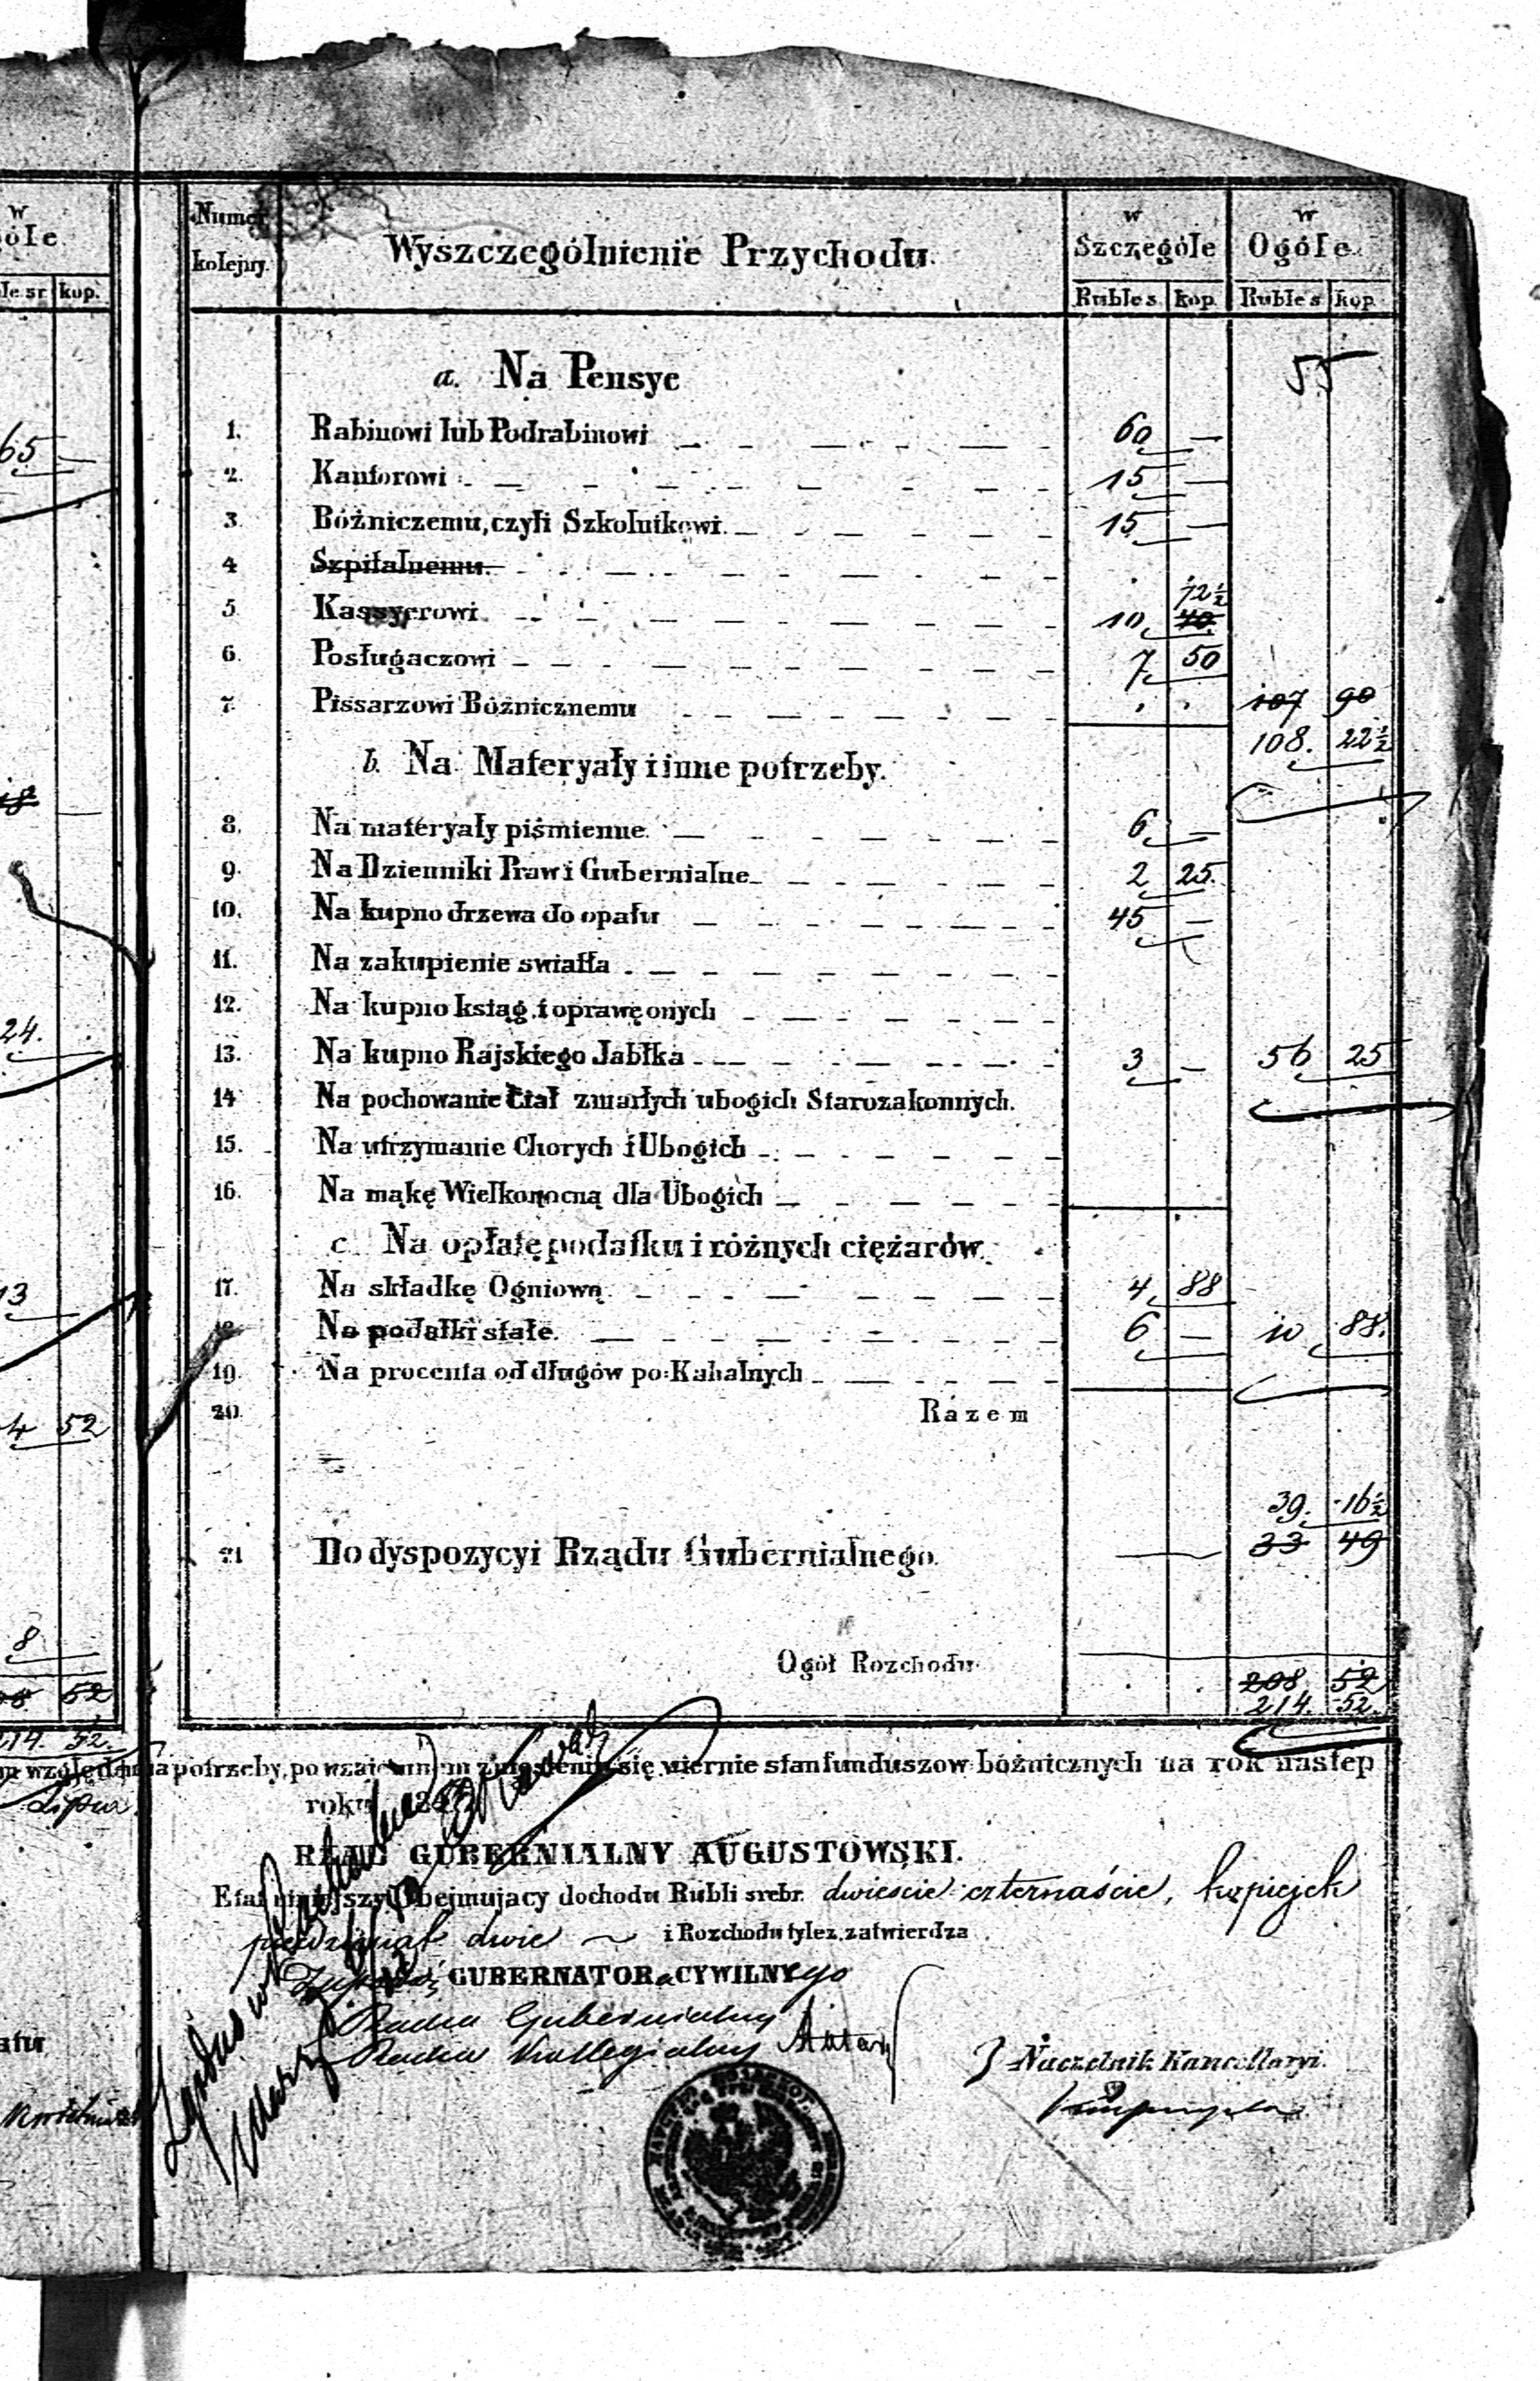 w
óle
le sr kop.
65 —
24.
13 —
4 52
8
08 52
214. 52.
Lipca
Kwietnia
Numer kolejny. Wyszczególnienie Przychodu. w Szczególe w Ogóle
Ruble s kop. Ruble s kop.
55
a. Na Pensye
1. Rabinowi lub Podrabinowi 60 —
2. Kantorowi 15 —
3. Bóżniczemu, czyli Szkolnikowi. 15 —
4 Szpitalnemu.
72½
5. Kassyerowi 10 40
6. Posługaczowi 7 50
7. Pissarzowi Bóżnicznemu 107 90
108. 22½
b. Na Materyały i inne potrzeby.
8. Na materyały piśmienne. 6 —
9. Na Dzienniki Praw i Gubernialne 2 25.
10. Na kupno drzewa do opału 45 —
11. Na zakupienie swiatła
12. Na kupno ksiąg i oprawę onych
13. Na kupno Rajskiego Jabłka 3 — 56 25
14 Na pochowanie Ciał zmarłych ubogich Starozakonnych.
15. Na utrzymanie Chorych i Ubogich
16. Na mąkę Wielkonocną dla Ubogich
c. Na opłatę podatku i różnych ciężarów.
17. Na składkę Ogniową. 4 88
18. Na podatki stałe. 6 — 10 88.
19. Na procenta od długów po-Kahalnych
20. Razem
39. 16½
21 Do dyspozycyi Rządu Gubernialnego. — 33 49
Ogół Rozchodu 208 52
214. 52.
względem na potrzeby, po wzajemnem zniesieniu się wiernie stan funduszow bóżnicznych na rok nastep
roku
RZĄD GUBERNIALNY AUGUSTOWSKI.
Etat niniejszy Obejmujący dochodu Rubli srebr. dwiescie czternaście, kopiejek
pięćdziesiąt dwie i Rozchodu tylez, zatwierdza
GUBERNATORa CYWILNYego
Radca Gubernialny
Radca Kollegialny
Naczelnik Kancellaryi.